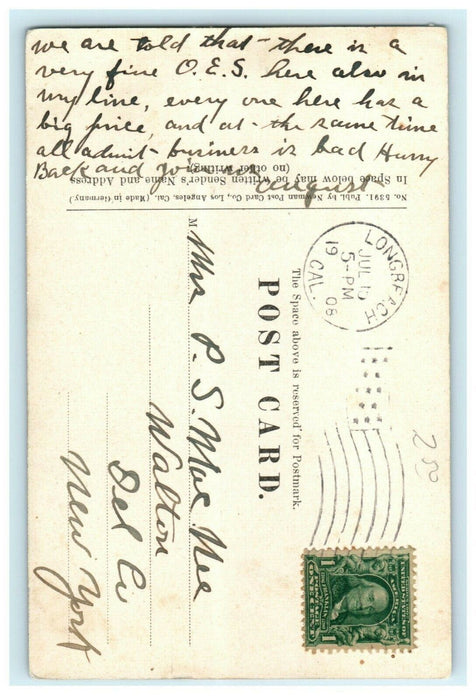 we are told that there is a
very fine O.E.S. here also in
my line, every one here has a
big price, and at the same time
all admit business is bad Hurry
Back and join us
August
In Space below may be written Sender's Name and Address
(no other writing)
No. 5391. Publ. by Newman Post Card Co., Los Angeles, Cal. (Made in Germany)
LONGBEACH
JUL 16
5-PM
19 08
CAL.
The Space above is reserved for Postmark.
POST CARD.
M
Mrs P. S. Mac Nee
Walton
Del Co
New York
200
UNITED STATES OF AMERICA
1 1